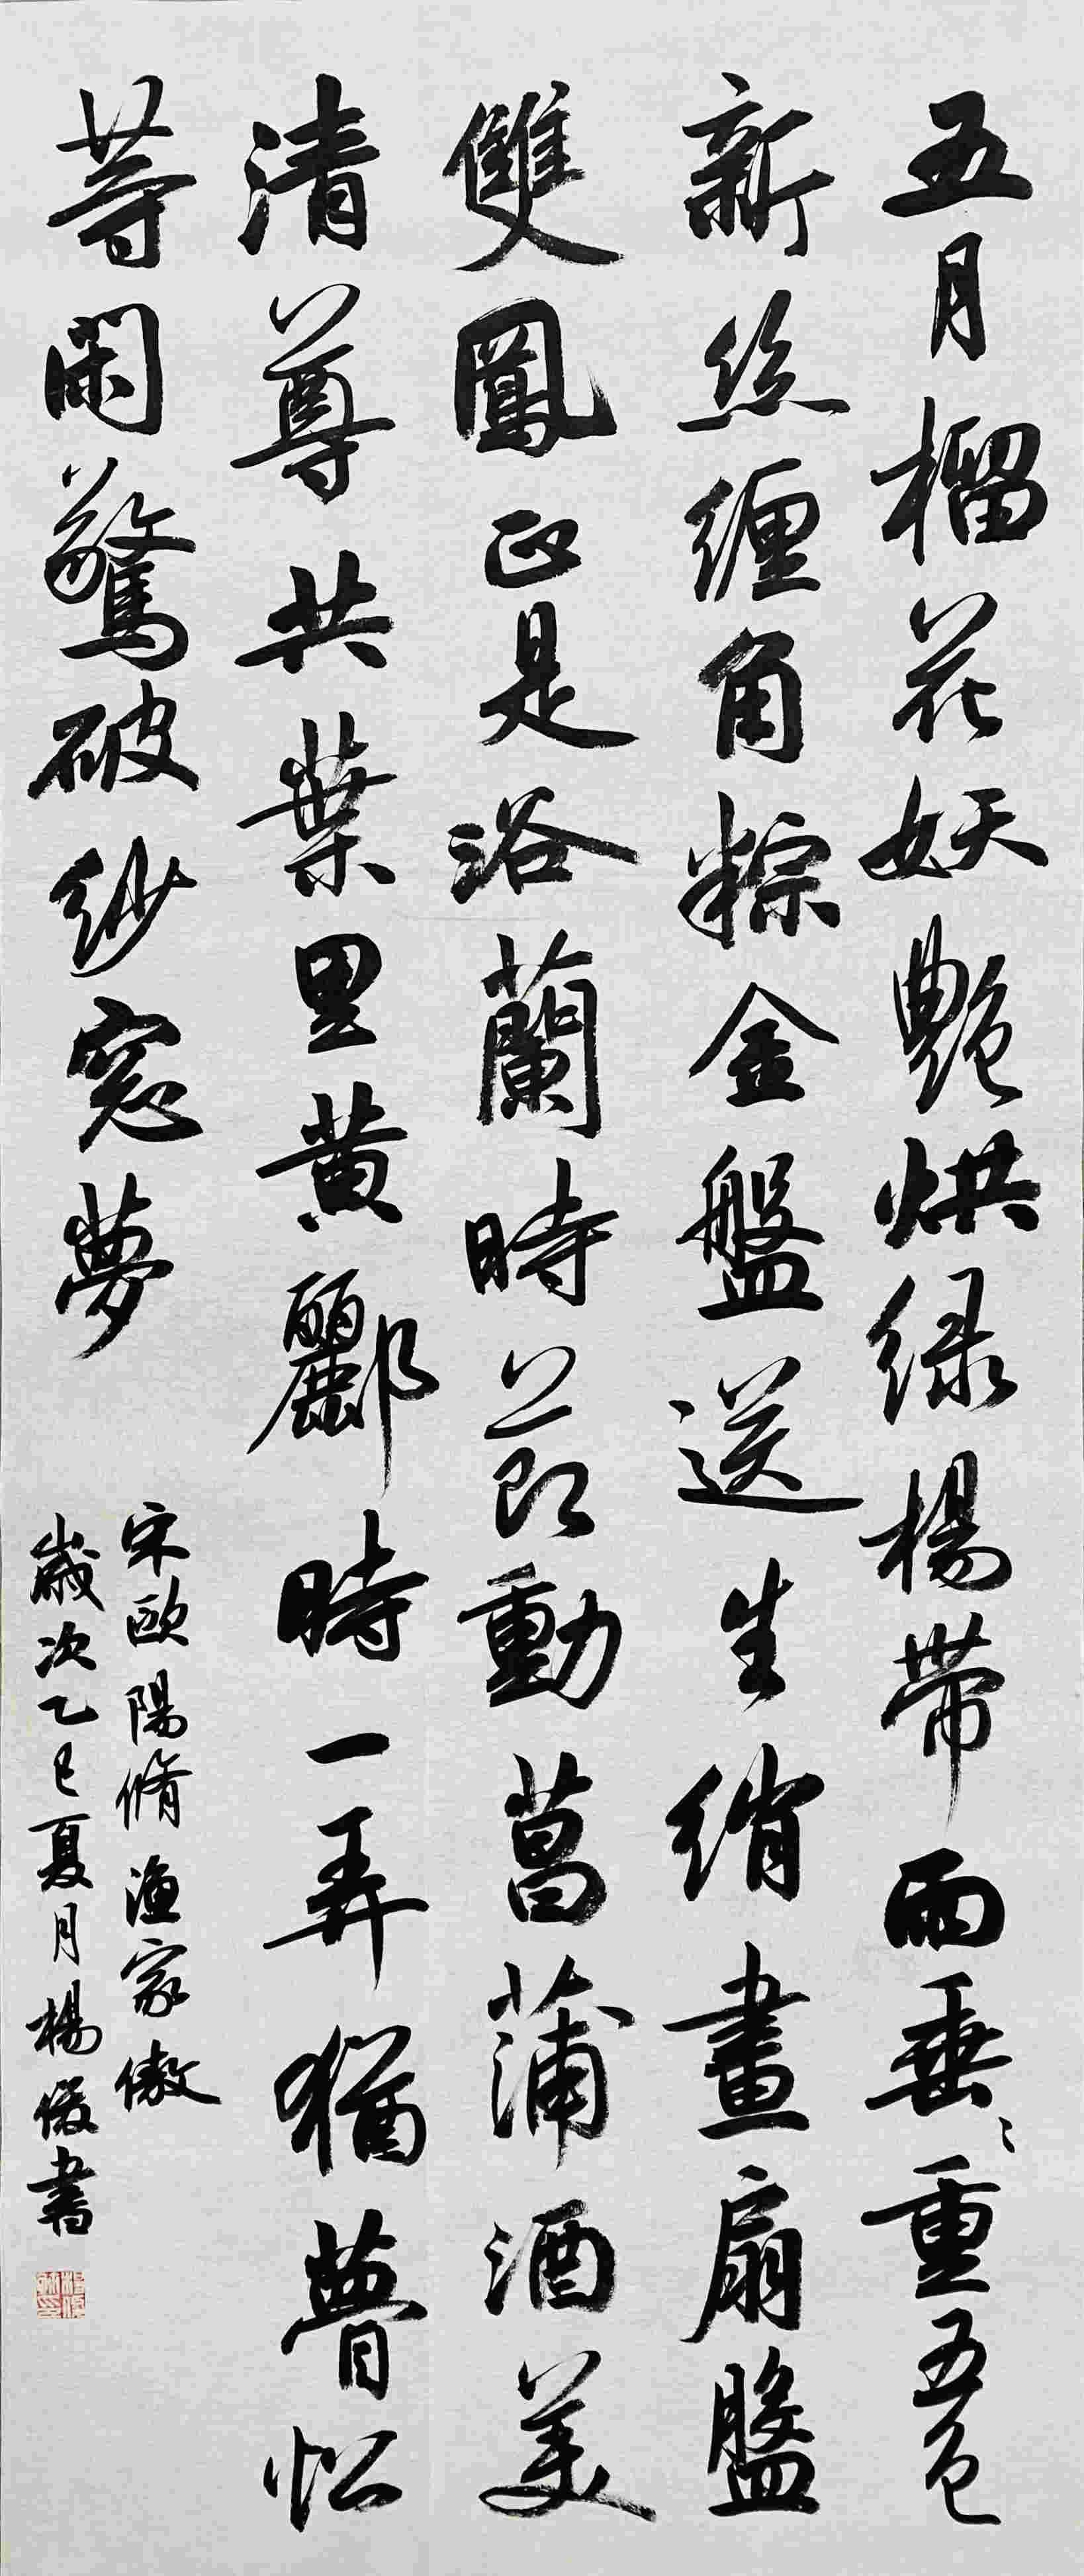 五月榴花妖艷烘绿楊带雨垂〻重五色
新丝缠角粽金盤送生绡畫扇盤
雙鳳正是浴蘭時莭動菖蒲酒美
清尊共葉里黄鸝時一弄猶瞢忪
等闲驚破纱窓夢
宋歐陽脩渔家傲
歲次乙巳夏月楊俊書